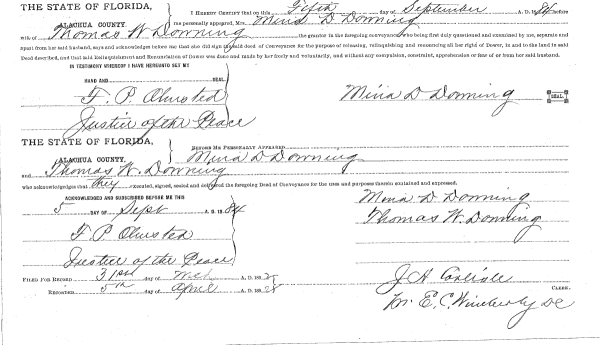 THE STATE OF FLORIDA,
ALACHUA COUNTY.
I HEREBY CERTIFY that on this Fifth day of September 84 before
me personally appeared, Mrs. Mina D Downing
wife of Thomas W Downing the grantor in the foregoing conveyance who being first duly questioned and examined by me, separate and
apart from her said husband, says and acknowledges before me that she did sign the said deed of Conveyance for the purpose of releasing, relinquishing and renouncing all her right of Dower, in and to the land in said
Deed described, and that said Relinquishment and Renunciation of Dower was done and made by her freely and voluntarily, and without any compulsion, constraint, apprehension or fear of or from her said husband.
IN TESTIMONY WHEREOF I HAVE HEREUNTO SET MY
HAND AND SEAL.
F. P. Olmsted Mina D Downing SEAL.
Justice of the Peace
THE STATE OF FLORIDA,
ALACHUA COUNTY.
BEFORE ME PERSONALLY APPEARED
Mina D Downing
and Thomas W. Downing
who acknowledges that they executed, signed, sealed and delivered the foregoing Deed of Conveyance for the uses and purposes therein contained and expressed.
ACKNOWLEDGED AND SUBSCRIBED BEFORE ME THIS
5 DAY OF Sept A. D. 1884
Mina D. Downing
Thomas W. Downing
F. P. Olmsted
Justice of the Peace
FILED FOR RECORD 31st day of Mch A. D. 188
RECORDED 5th day of April A. D. 188
J A Carlisle CLERK.
Pr. E. C. Wimberly DC